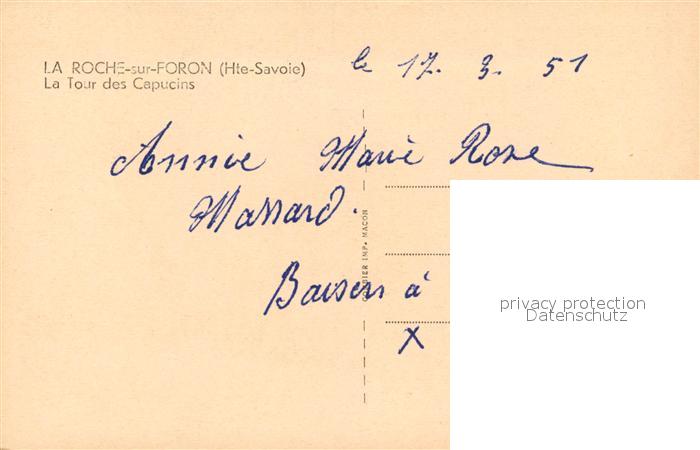 LA ROCHE-sur-FORON (Hte-Savoie)
La Tour des Capucins
le 17. 3. 51
Annie Marie Rose
Massard.
Baisers à
X
IMP. MACON
privacy protection
Datenschutz